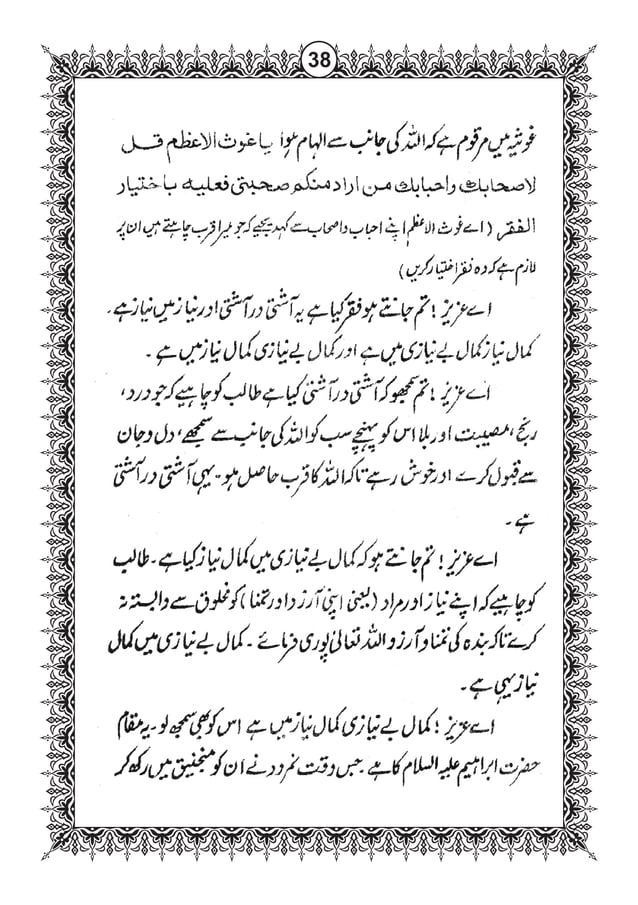 38
غوثیہ میں مرقوم ہے کہ اللہ کی جانب سے الہام ہوا یا غوث الاعظم قل
لاصحابك واحبابك من اراد منكم صحبتی فعلیه باختیار
الفقر (اے غوث الاعظم اپنے احباب و اصحاب سے کہہ دیجیے کہ جو میرا قرب چاہتے ہیں ان پر
لازم ہے کہ وہ فقر اختیار کریں)
اے عزیز! تم جانتے ہو فقر کیا ہے یہ آشتی در آشتی اور نیاز میں نیاز ہے۔
کمال نیاز کمال بے نیازی میں ہے اور کمال بے نیازی کمال نیاز میں ہے۔
اے عزیز! تم سمجھو کہ آشتی در آشتی کیا ہے طالب کو چاہیے کہ جو درد،
رنج، مصیبت اور بلا اس کو پہنچے سب کو اللہ کی جانب سے سمجھے، دل و جان
سے قبول کرے اور خوش رہے تاکہ اللہ کا قرب حاصل ہو۔ یہی آشتی در آشتی
ہے۔
اے عزیز! تم جانتے ہو کہ کمال بے نیازی میں کمال نیاز کیا ہے۔ طالب
کو چاہیے کہ اپنے نیاز اور مراد (یعنی اپنی آرزو اور تمنا) کو مخلوق سے وابستہ نہ
کرے تاکہ بندہ کی تمنا و آرزو اللہ تعالیٰ پوری فرمائے۔ کمال بے نیازی میں کمال
نیاز یہی ہے۔
اے عزیز! کمال بے نیازی کمال نیاز میں ہے اس کو بھی سمجھ لو۔ یہ مقام
حضرت ابراہیم علیہ السلام کا ہے جس وقت نمرود نے اُن کو منجنیق میں رکھ کر